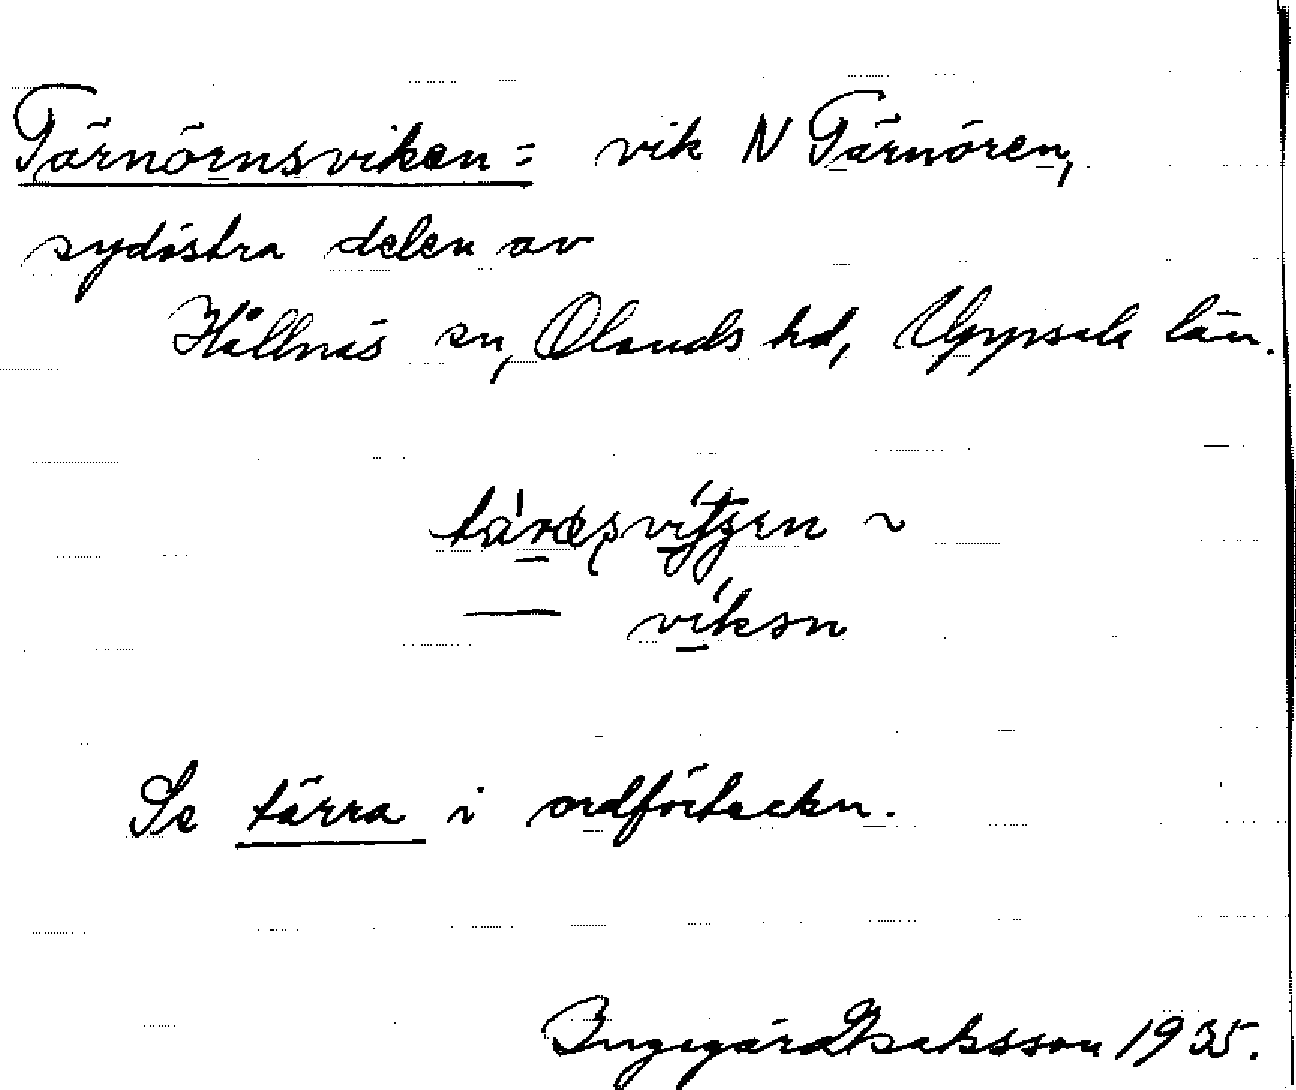 Tärnörnsviken: vik N Tärnören,
sydöstra delen av
Hållnäs sn, Olands hd, Uppsala län.
~
— vikən
Se tärra i ordförteckn.
Ingegärd Isaksson 1935.